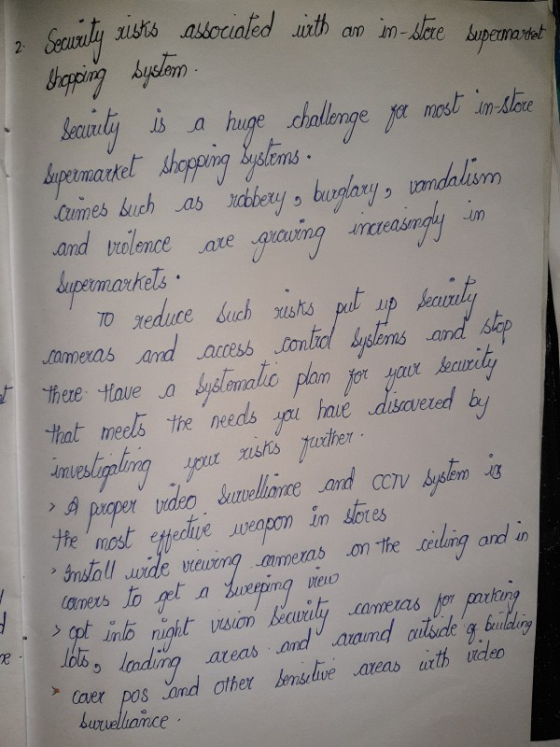 2. Security risks associated with an in-store supermarket
shopping system.
Security is a huge challenge for most in-store
supermarket shopping systems.
crimes such as robbery, burglary, vandalism
and violence are growing increasingly in
supermarkets.
To reduce such risks put up security
cameras and access control systems and stop
there. Have a systematic plan for your security
that meets the needs you have discovered by
investigating your risks further.
> A proper video survelliance and CCTV system is
the most effective weapon in stores
> Install wide viewing cameras on the ceiling and in
corners to get a sweeping view
> opt into night vision security cameras for parking
lots, loading areas and around outside of building
> cover pos and other sensitive areas with video
survelliance.